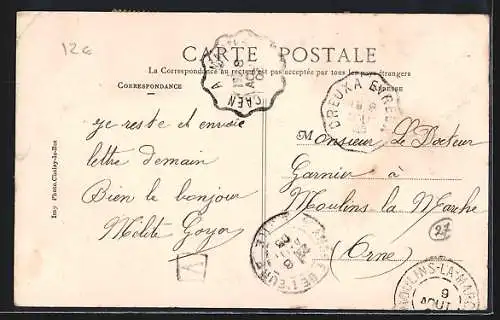 12e
CARTE POSTALE
La Correspondance au recto n'est pas acceptée par tous les pays étrangers
CORRESPONDANCE
ADRESSE
CAEN A
DREUX A EVREUX
je reste et envoie
lettre demain
Bien le bonjour
Mélite Goyer
Monsieur Le Docteur
Garnier à
Moulins la Marche
(Orne)
27
MOULINS-LA-MARCHE
9
AOUT
Imp Photo.